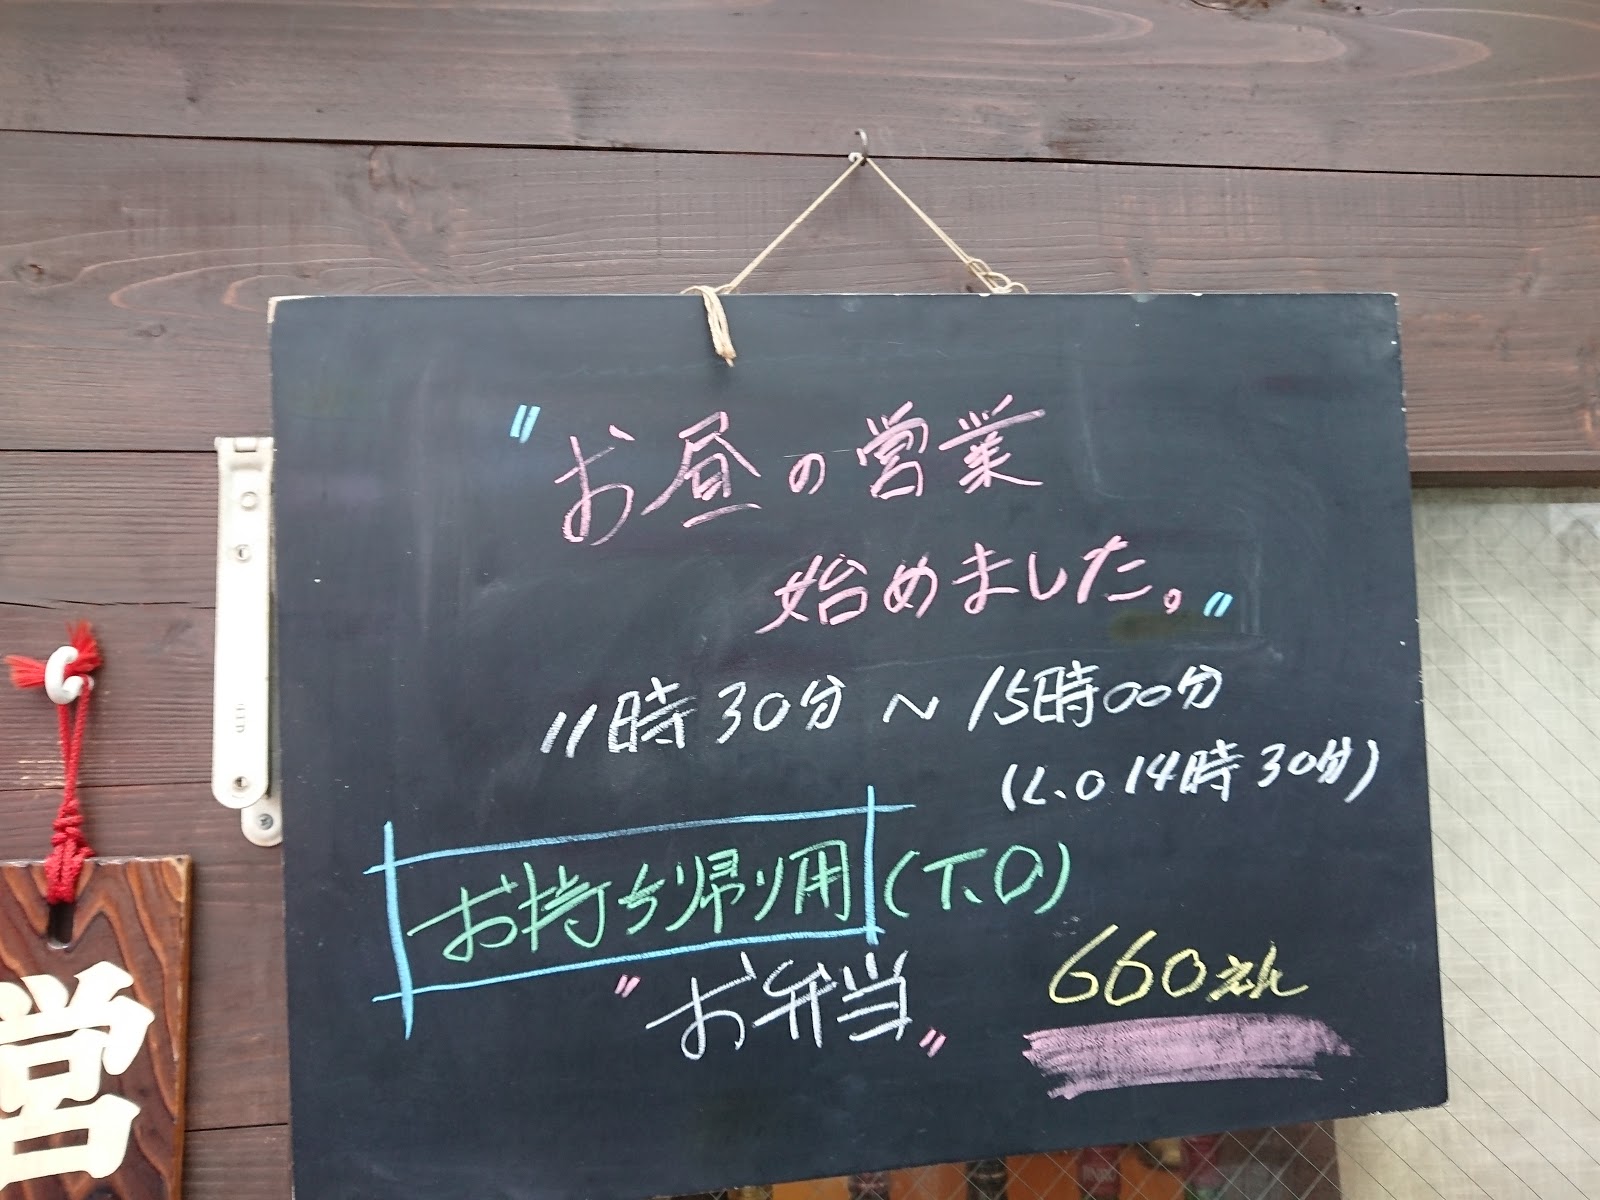 "お昼の営業
始めました。"
11時30分～15時00分
(L.O 14時30分)
お持ち帰り用(T.O)
"お弁当"
660えん
営